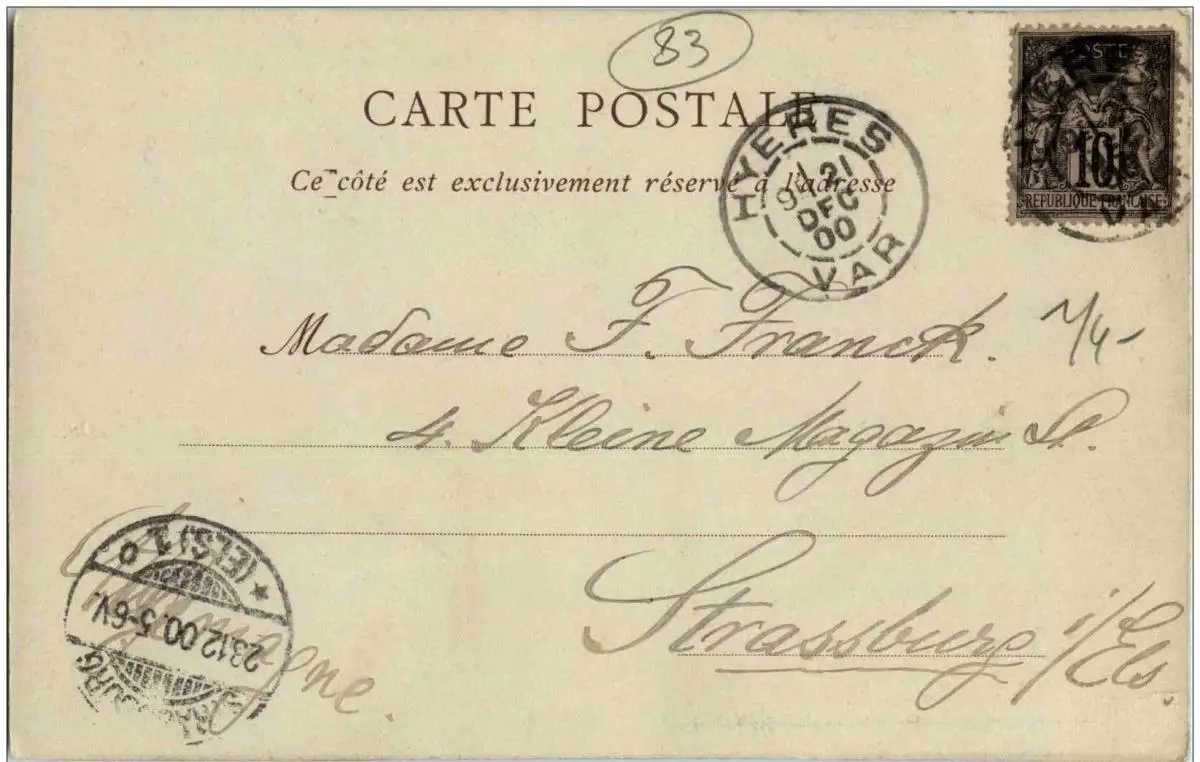 83
CARTE POSTALE
Ce côté est exclusivement réservé à l'adresse
POSTE
10
RÉPUBLIQUE FRANÇAISE
HYERES
21
DEC
00
VAR
Madame F. Franck.
4. Kleine Magazin St.
Strassburg i/Els.
Allemagne.
STRASSBURG
23.12.00.5-6V.
* (ELS) 1 o